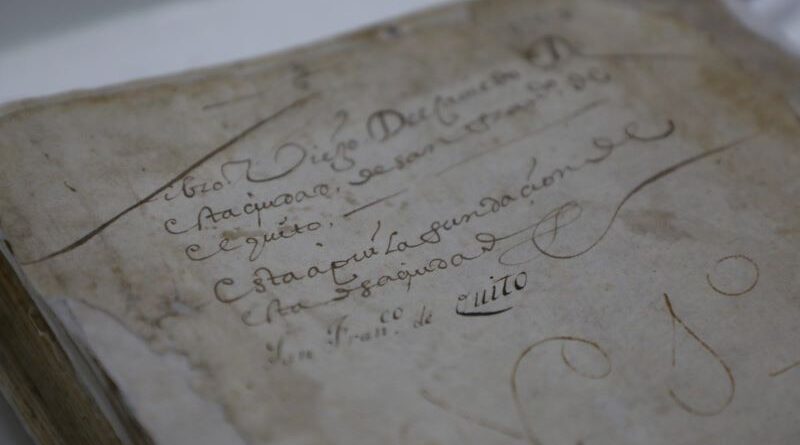 libro. Viejo Del cavildo De
esta ciudad. de san fran.co de
el quito.
Esta aqui La fundación de
esta dha ciudad
San Fran.co de Quito